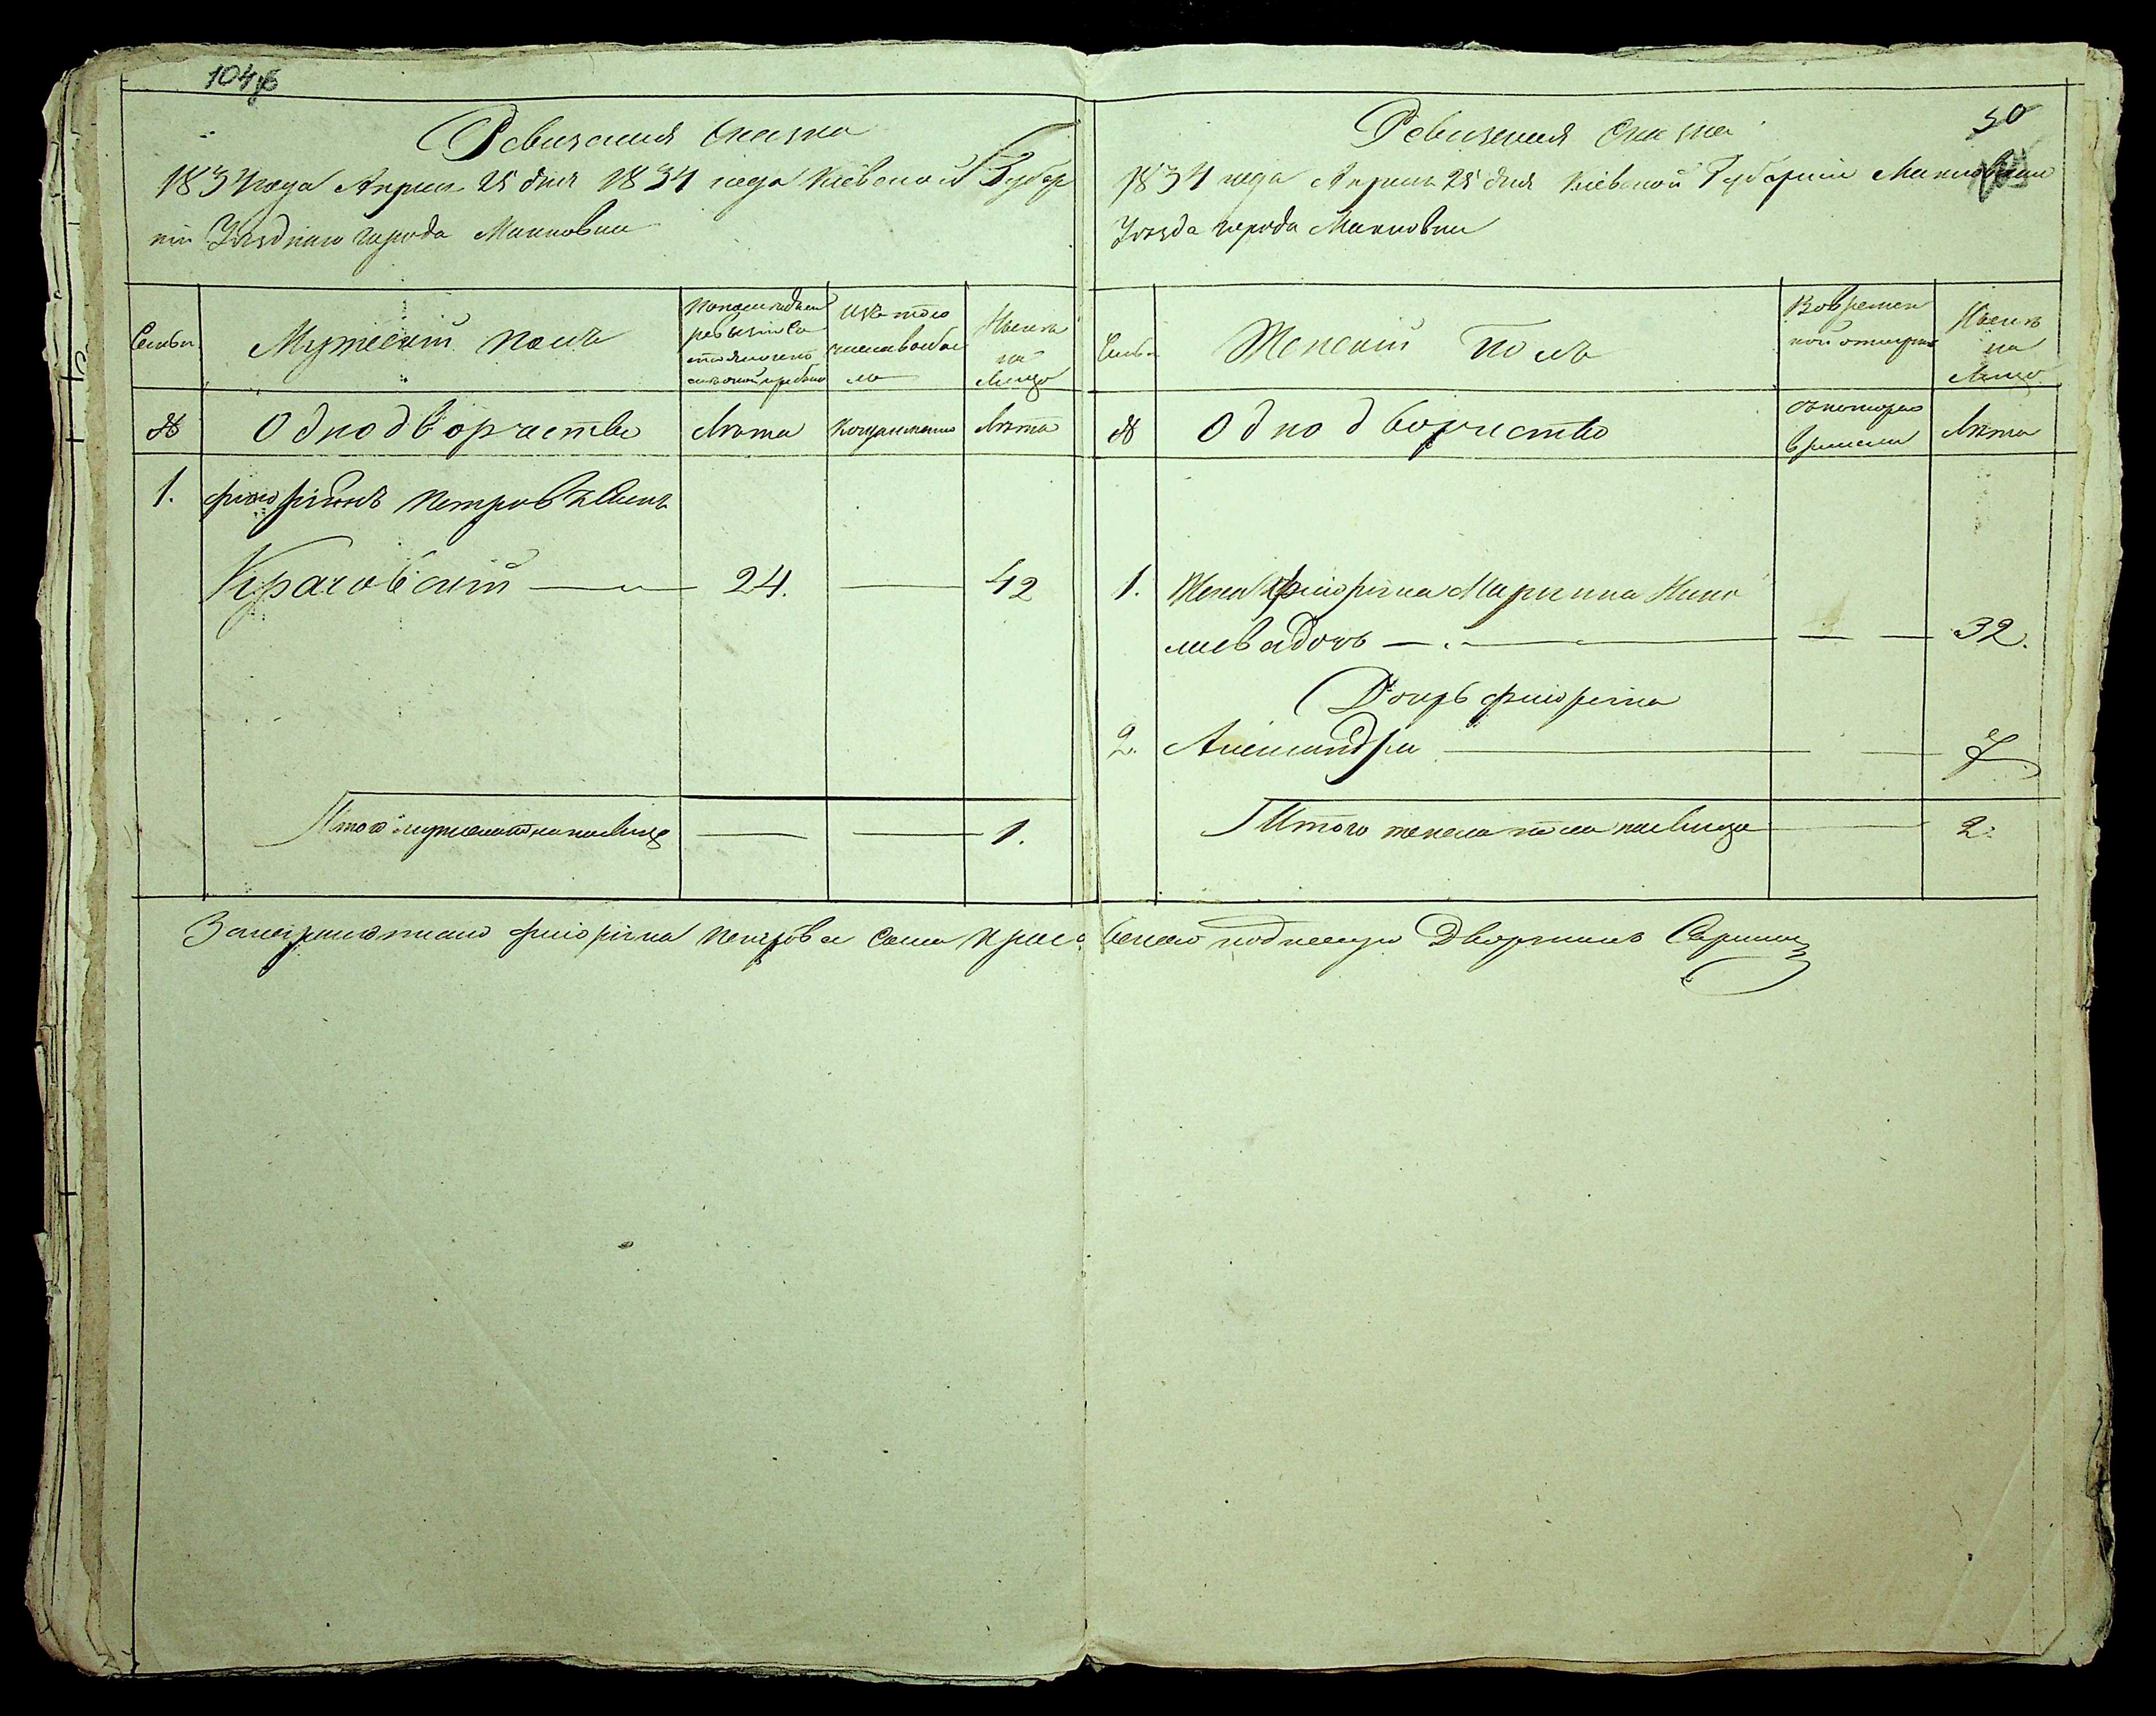 104
Ревизская Сказка
1834 года Апреля 25 дня 1834 года Киевской Губер
нии Уездного города Махновки
Семьи
Мужеский полъ
По последней
ревизии со
Изъ того
числа выбы
ло
Ныне
на
Лицо
№
Однодворчества
Лета
Когда именно
Лета
1.
Флорианъ Петровъ Сынъ
Красовский 24. 42
Итого мужеска пола на Лицо 1.
50
Ревизская Сказка
1834 года Апреля 25 дня Киевской Губернии Махновского
Уезда города Махновки
Семьи
Женский Полъ
Во времен
ной отлучке
Ныне
на
Лицо
№
Однодворчество
съ которого
времени
Лета
1. Жена Флориана Марианна Нико
лаева дочь 32.
Дочь Флориана
2. Александра 7
Итого женска пола на Лицо 2.
Занеграмотнаго Флориана Петрова Сына Красовского подписую Дворянинъ